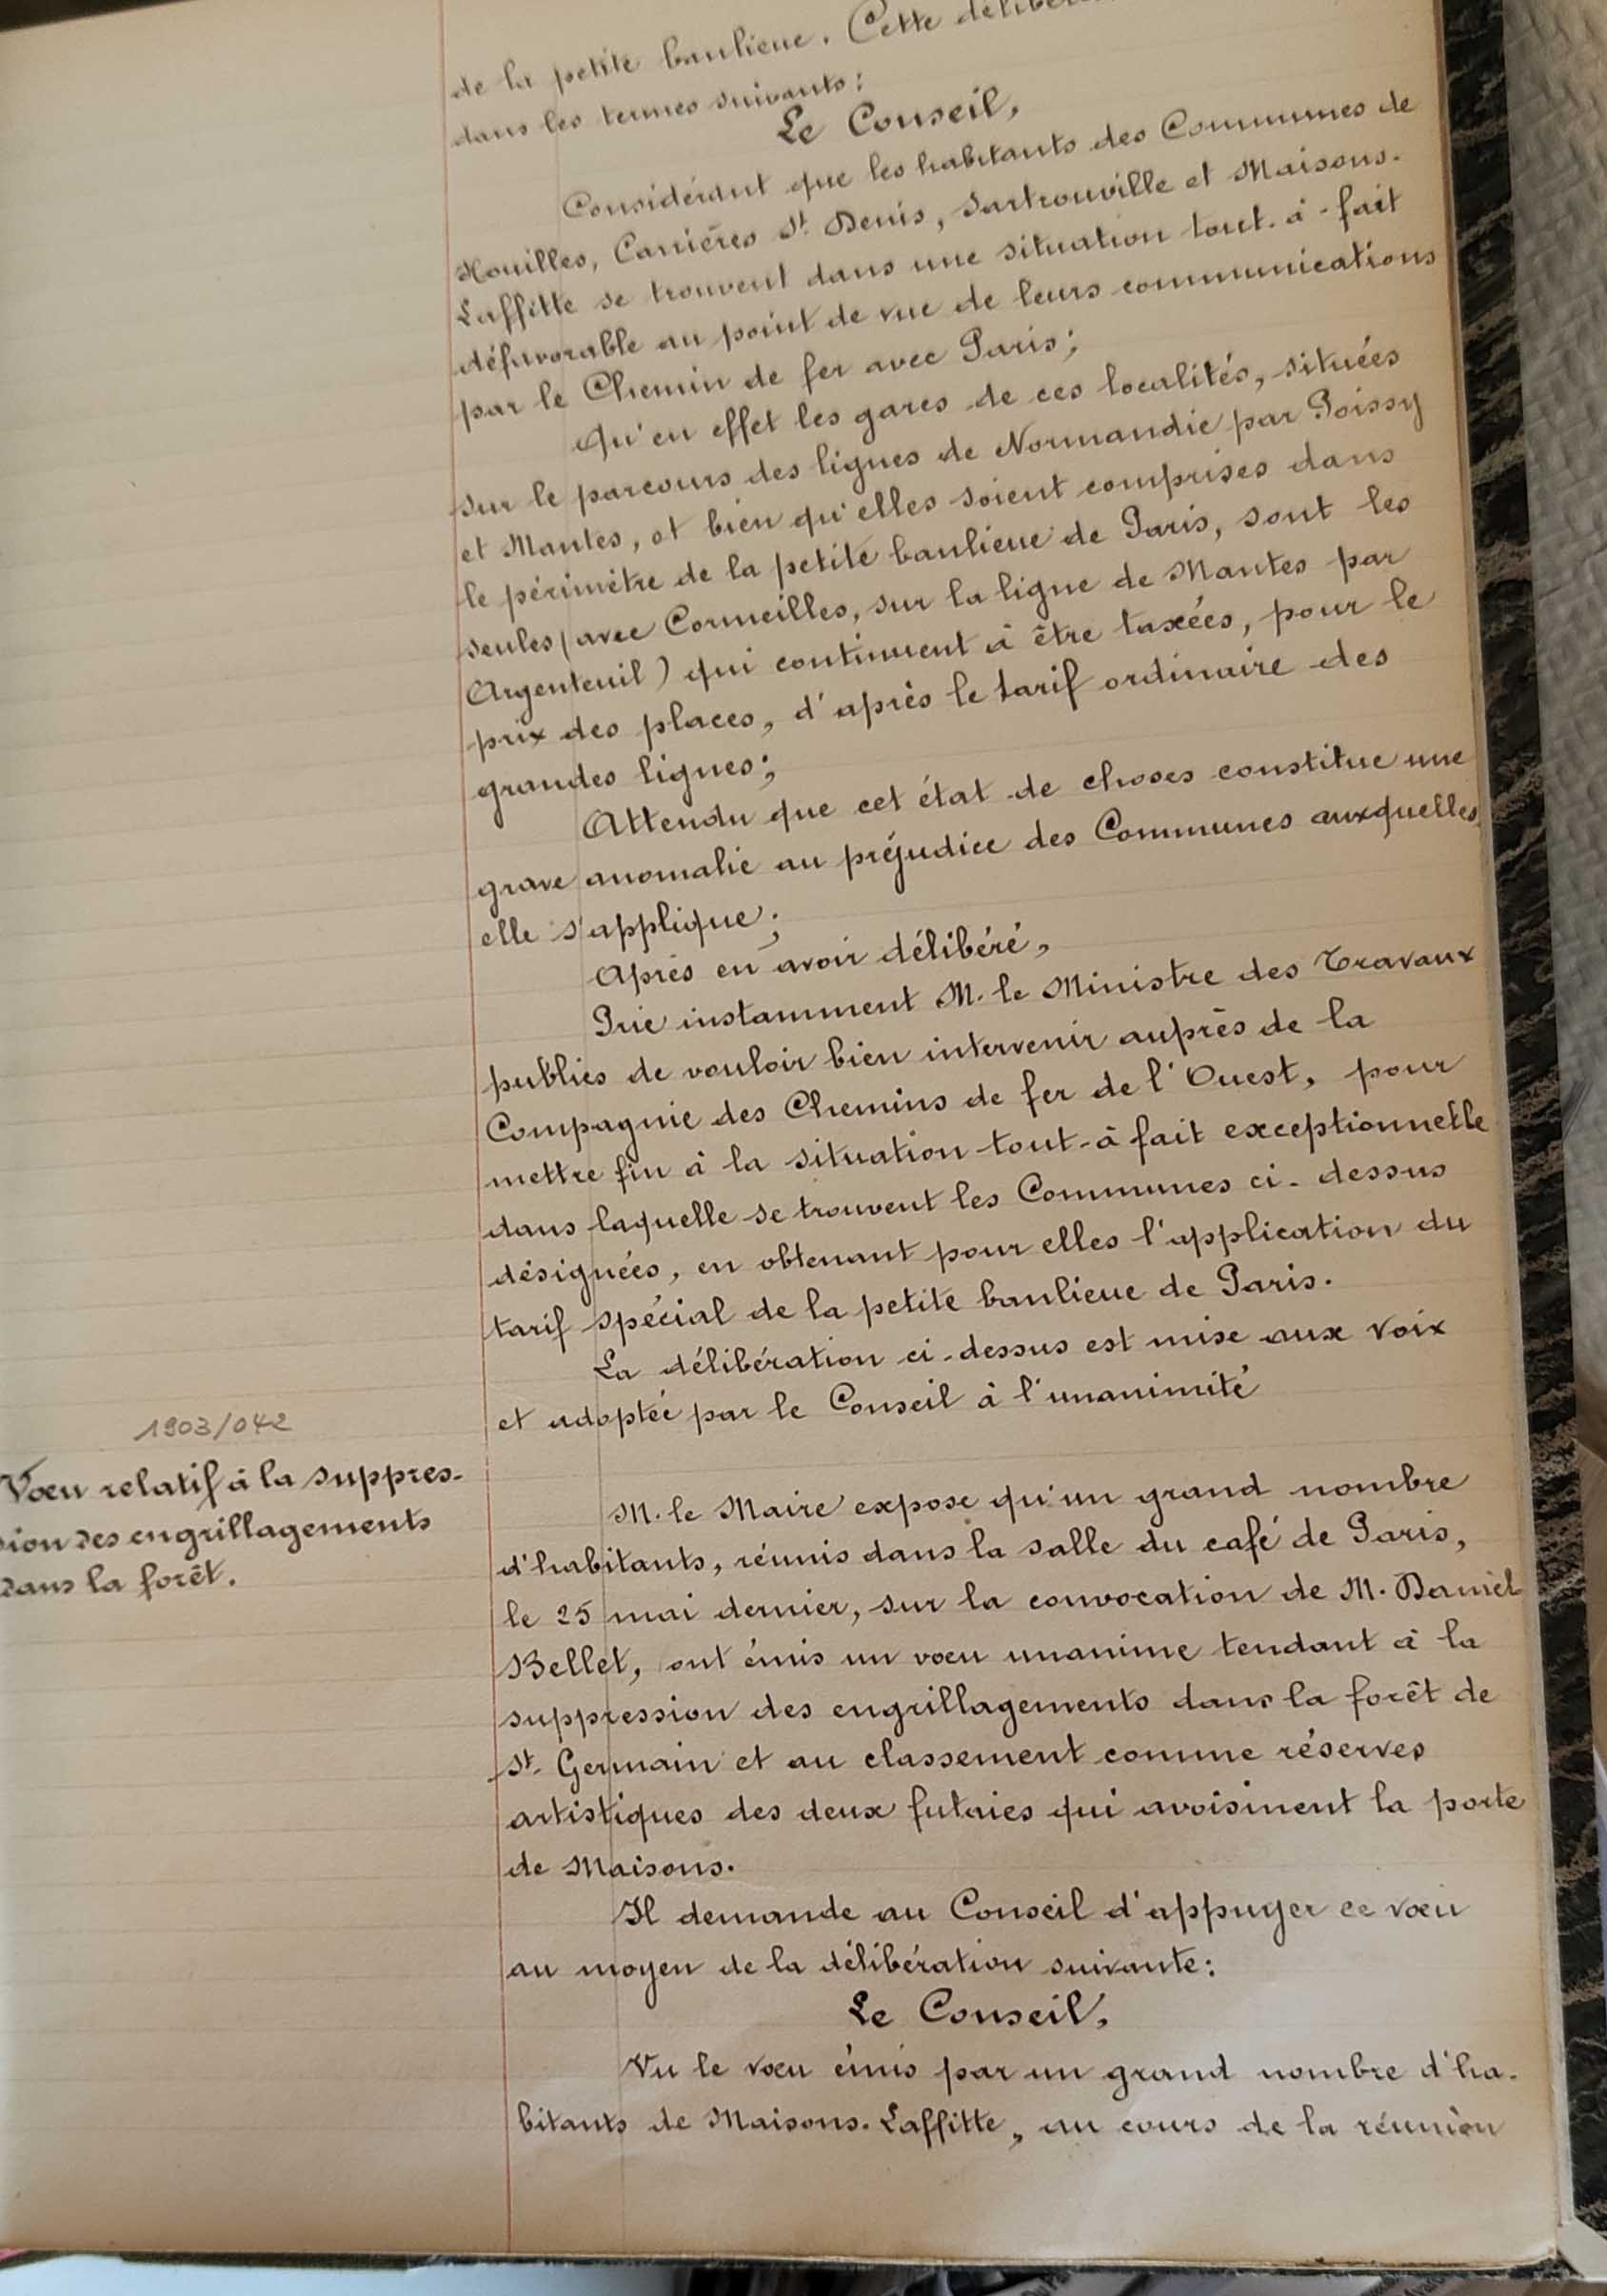 de la petite banlieue. Cette
dans les termes suivants:
Le Conseil,
Considérant que les habitants des Communes de
Houilles, Carrières St. Denis, Sartrouville et Maisons-
Laffitte se trouvent dans une situation tout-à-fait
défavorable au point de vue de leurs communications
par le Chemin de fer avec Paris;
Qu'en effet les gares de ces localités, situées
sur le parcours des lignes de Normandie par Poissy
et Mantes, et bien qu'elles soient comprises dans
le périmètre de la petite banlieue de Paris, sont les
seules (avec Cormeilles, sur la ligne de Mantes par
Argenteuil) qui continuent à être taxées, pour le
prix des places, d'après le tarif ordinaire des
grandes lignes;
Attendu que cet état de choses constitue une
grave anomalie au préjudice des Communes auxquelles
elle s'applique;
Après en avoir délibéré,
Prie instamment M. le Ministre des Travaux
publics de vouloir bien intervenir auprès de la
Compagnie des Chemins de fer de l'Ouest, pour
mettre fin à la situation tout-à fait exceptionnelle
dans laquelle se trouvent les Communes ci-dessus
désignées, en obtenant pour elles l'application du
tarif spécial de la petite banlieue de Paris.
La délibération ci-dessus est mise aux voix
et adoptée par le Conseil à l'unanimité
1903/042
Vœu relatif à la suppres-
sion des engrillagements
dans la forêt.
M. le Maire expose qu'un grand nombre
d'habitants, réunis dans la salle du café de Paris,
le 25 mai dernier, sur la convocation de M. Daniel
Bellet, ont émis un vœu unanime tendant à la
suppression des engrillagements dans la forêt de
St. Germain et au classement comme réserves
artistiques des deux futaies qui avoisinent la porte
de Maisons.
Il demande au Conseil d'appuyer ce vœu
au moyen de la délibération suivante:
Le Conseil,
Vu le vœu émis par un grand nombre d'ha-
bitants de Maisons-Laffitte, au cours de la réunion